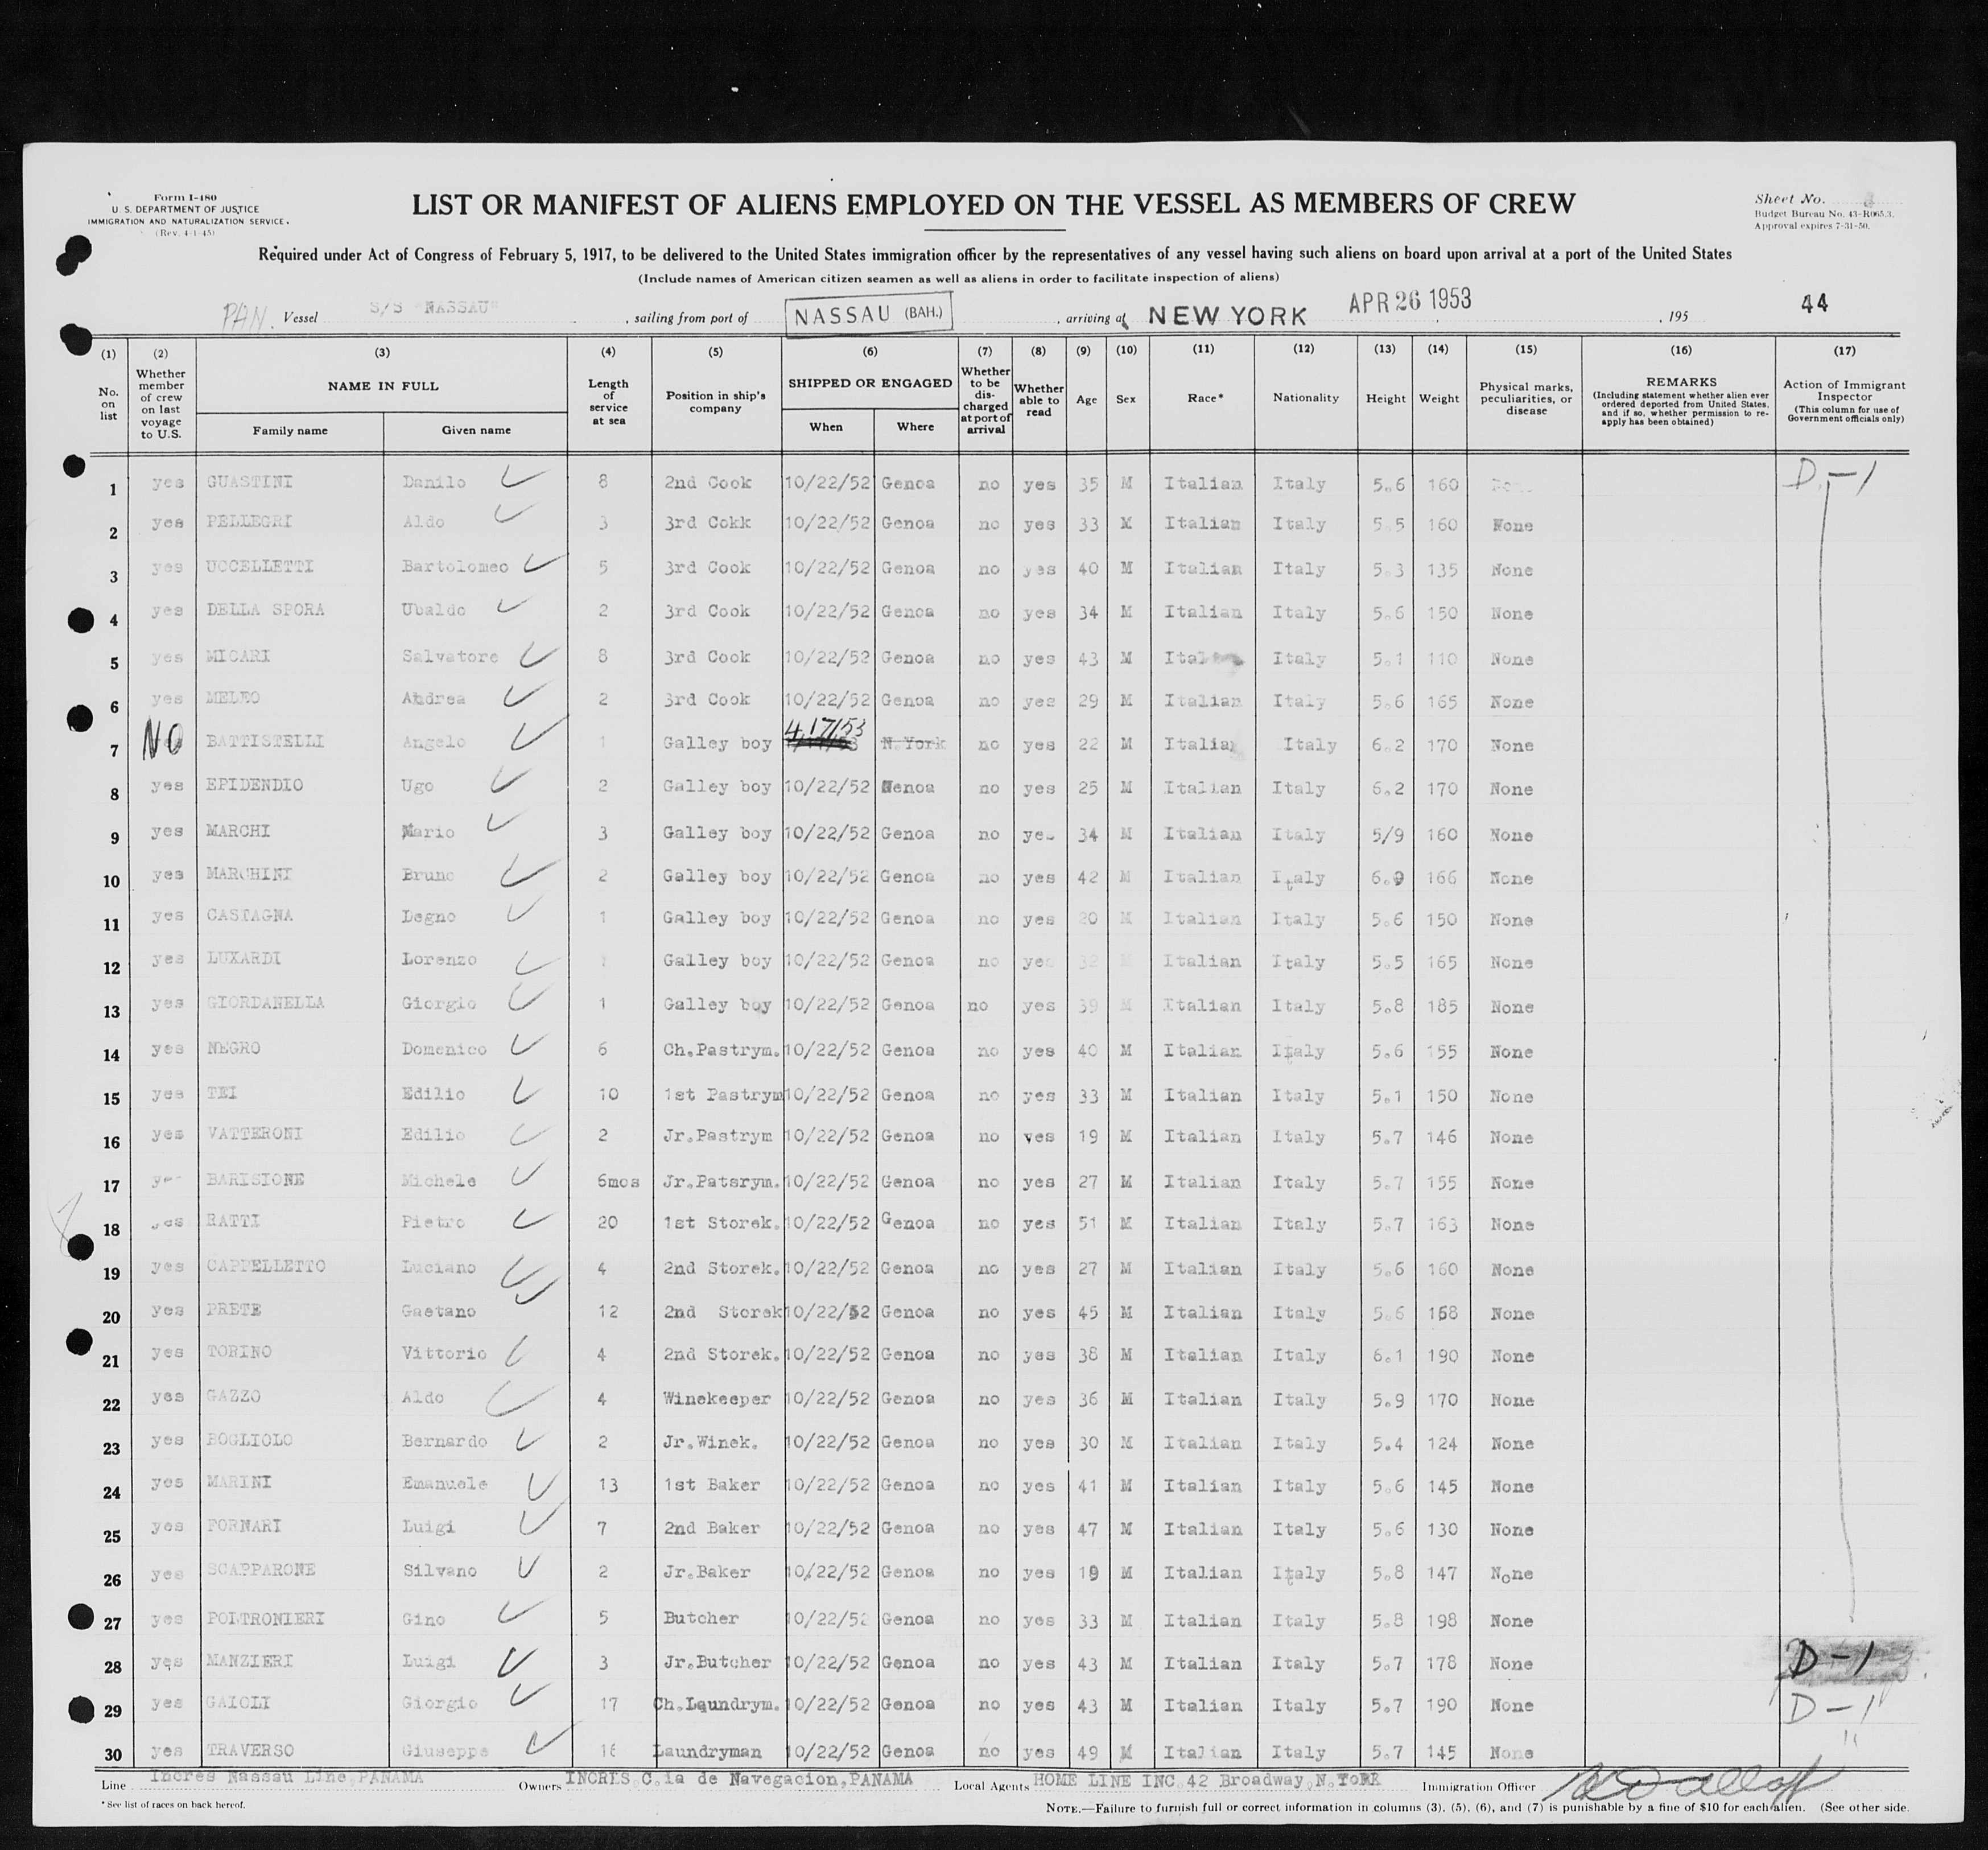 Form I-480
U. S. DEPARTMENT OF JUSTICE
IMMIGRATION AND NATURALIZATION SERVICE.
(Rev. 4-1-45)
LIST OR MANIFEST OF ALIENS EMPLOYED ON THE VESSEL AS MEMBERS OF CREW
Sheet No.
Budget Bureau No. 43-R065.3.
Approval expires 7-31-50.
Required under Act of Congress of February 5, 1917, to be delivered to the United States immigration officer by the representatives of any vessel having such aliens on board upon arrival at a port of the United States
(Include names of American citizen seamen as well as aliens in order to facilitate inspection of aliens)
PAN. Vessel S/S "NASSAU" , sailing from port of NASSAU (BAH.) , arriving at NEW YORK APR 26 1953 , 195 44
(1) (2) (3) (4) (5) (6) (7) (8) (9) (10) (11) (12) (13) (14) (15) (16) (17)
No. on list Whether member of crew on last voyage to U.S. NAME IN FULL Family name Given name Length of service at sea Position in ship's company SHIPPED OR ENGAGED When Where Whether to be discharged at port of arrival Whether able to read Age Sex Race* Nationality Height Weight Physical marks, peculiarities, or disease REMARKS (Including statement whether alien ever ordered deported from United States, and if so, whether permission to re-apply has been obtained) Action of Immigrant Inspector (This column for use of Government officials only)
1 yes GUASTINI Danilo 8 2nd Cook 10/22/52 Genoa no yes 35 M Italian Italy 5.6 160 D-1
2 yes PELLEGRI Aldo 3 3rd Cokk 10/22/52 Genoa no yes 33 M Italian Italy 5.5 160 None
3 yes UCCELLETTI Bartolomeo 5 3rd Cook 10/22/52 Genoa no yes 40 M Italian Italy 5.3 135 None
4 yes DELLA SPORA Ubaldo 2 3rd Cook 10/22/52 Genoa no yes 34 M Italian Italy 5.6 150 None
5 yes MICARI Salvatore 8 3rd Cook 10/22/52 Genoa no yes 43 M Italy 5.1 110 None
6 yes MELEO Andrea 2 3rd Cook 10/22/52 Genoa no yes 29 M Italian Italy 5.6 165 None
7 NO BATTISTELLI Angelo 1 Galley boy 4/17/53 N.York no yes 22 M Italian Italy 6.2 170 None
8 yes EPIDENDIO Ugo 2 Galley boy 10/22/52 Genoa no yes 25 M Italian Italy 6.2 170 None
9 yes MARCHI Mario 3 Galley boy 10/22/52 Genoa no yes 34 M Italian Italy 5/9 160 None
10 yes MARCHINI Bruno 2 Galley boy 10/22/52 Genoa no yes 42 M Italian Italy 6.9 166 None
11 yes CASTAGNA Degno 1 Galley boy 10/22/52 Genoa no yes 20 M Italian Italy 5.6 150 None
12 yes LUXARDI Lorenzo Galley boy 10/22/52 Genoa no yes 32 Italian Italy 5.5 165 None
13 yes GIORDANELLA Giorgio 1 Galley boy 10/22/52 Genoa no yes 39 M Italian Italy 5.8 185 None
14 yes NEGRO Domenico 6 Ch.Pastrym. 10/22/52 Genoa no yes 40 M Italian Italy 5.6 155 None
15 yes TEI Edilio 10 1st Pastrym 10/22/52 Genoa no yes 33 M Italian Italy 5.1 150 None
16 yes VATTERONI Edilio 2 Jr.Pastrym 10/22/52 Genoa no yes 19 M Italian Italy 5.7 146 None
17 yes BARISIONE Michele 6mos Jr.Patsrym. 10/22/52 Genoa no yes 27 M Italian Italy 5.7 155 None
18 yes RATTI Pietro 20 1st Storek. 10/22/52 Genoa no yes 51 M Italian Italy 5.7 163 None
19 yes CAPPELLETTO Luciano 4 2nd Storek. 10/22/52 Genoa no yes 27 M Italian Italy 5.6 160 None
20 yes PRETE Gaetano 12 2nd Storek 10/22/52 Genoa no yes 45 M Italian Italy 5.6 168 None
21 yes TORINO Vittorio 4 2nd Storek. 10/22/52 Genoa no yes 38 M Italian Italy 6.1 190 None
22 yes GAZZO Aldo 4 Winekeeper 10/22/52 Genoa no yes 36 M Italian Italy 5.9 170 None
23 yes BOGLIOLO Bernardo 2 Jr.Winek. 10/22/52 Genoa no yes 30 M Italian Italy 5.4 124 None
24 yes MARINI Emanuele 13 1st Baker 10/22/52 Genoa no yes 41 M Italian Italy 5.6 145 None
25 yes FORNARI Luigi 7 2nd Baker 10/22/52 Genoa no yes 47 M Italian Italy 5.6 130 None
26 yes SCAPPARONE Silvano 2 Jr.Baker 10/22/52 Genoa no yes 19 M Italian Italy 5.8 147 None
27 yes POLTRONIERI Gino 5 Butcher 10/22/52 Genoa no yes 33 M Italian Italy 5.8 198 None
28 yes MANZIERI Luigi 3 Jr.Butcher 10/22/52 Genoa no yes 43 M Italian Italy 5.7 178 None D-1
29 yes GAIOLI Giorgio 17 Ch.Laundrym. 10/22/52 Genoa no yes 43 M Italian Italy 5.7 190 None D-1
30 yes TRAVERSO Giuseppe 16 Laundryman 10/22/52 Genoa no yes 49 M Italian Italy 5.7 145 None "
Line Incres Nassau Line,PANAMA Owners INCRES C.ia de Navegacion,PANAMA Local Agents HOME LINE INC 42 Broadway,N.YORK Immigration Officer
* See list of races on back hereof.
NOTE.—Failure to furnish full or correct information in columns (3), (5), (6), and (7) is punishable by a fine of $10 for each alien. (See other side.